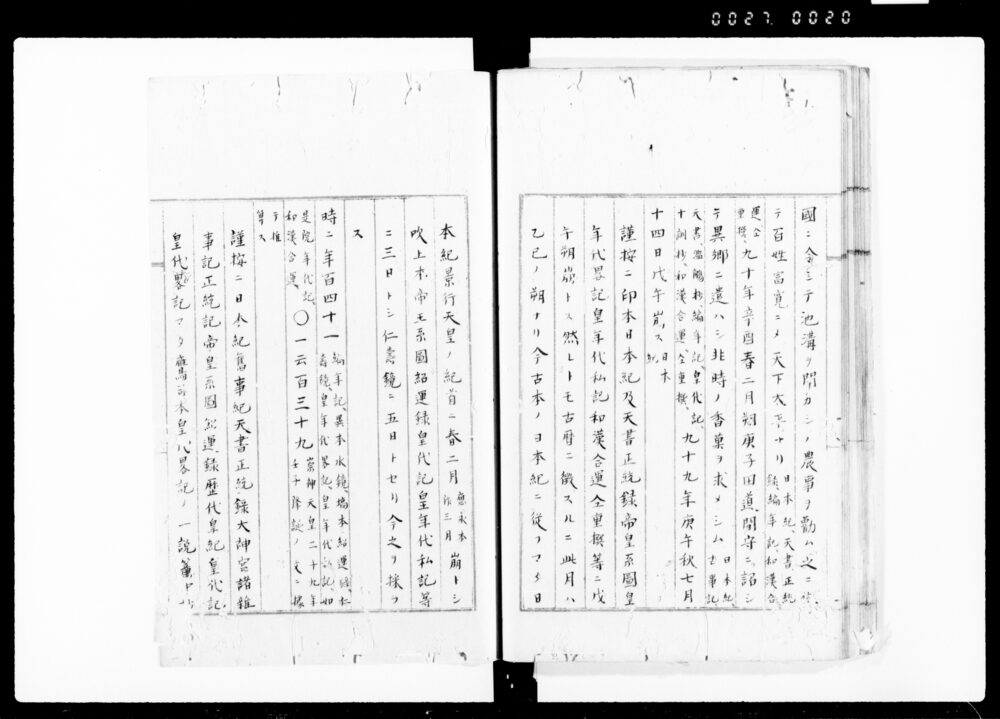 0027 0020
國ニ令シテ池溝ヲ開カシメ農事ヲ勸ム之ニ依
テ百姓富寛ニメ天下太平ナリ 日本紀、天書正統録、編年記、和漢合
運、仝重撰、九十年辛酉春二月朔庚子田道間守ニ詔シ
テ異郷ニ遣ハシ非時ノ香菓ヲ求メシム 日本紀、古事記
天書、編年記、皇代記、
十訓抄、和漢合運、仝重撰、九十九年庚午秋七月
十四日戊午崩ス 日本紀
謹按ニ印本日本紀及天書正統録帝皇系圖皇
年代畧記皇年代私記和漢合運仝重撰等ニ戊
午朔崩トス然レトモ古暦ニ徴スルニ此月ハ
乙巳ノ朔ナリ今古本ノ日本紀ニ從フマタ日
本紀景行天皇ノ紀首ニ春二月 應永本作三月 崩トシ
吹上本帝王系圖紹運録皇代記皇年代私記等
ニ三日トシ仁壽鏡ニ五日トセリ今之ヲ採ラ
ス
時ニ年百四十一 編年記、異本水鏡、
壽鏡、皇年代畧記、皇年代私記、如
是院年代記、
和漢合運、〇一云百三十九 崇神天皇二十九年
壬子降誕ノ文ニ據
テ推
算ス
謹按ニ日本紀舊事紀天書正統録大神宮諸雜
事記正統記帝皇系圖紹運録歴代皇紀皇代記
皇代畧記マタ應永本皇代畧記ノ一説簾中抄